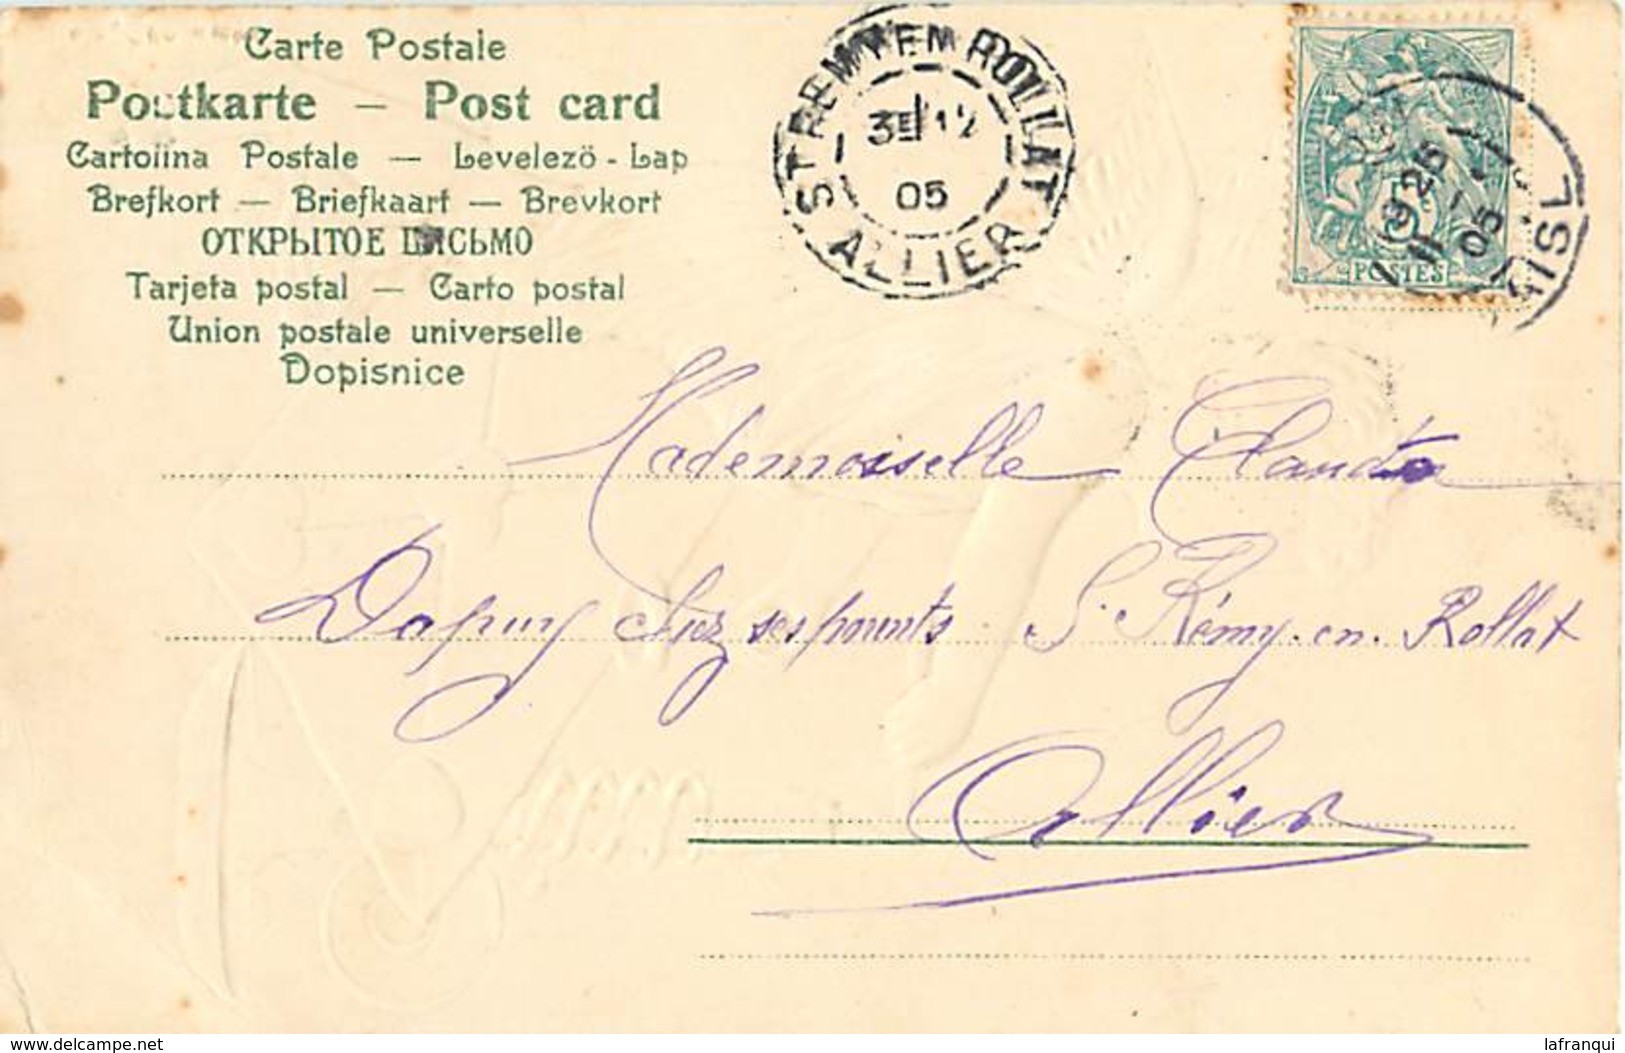 Carte Postale
Postkarte — Post card
Cartolina Postale — Levelezö-Lap
Brefkort — Briefkaart — Brevkort
ОТКРЫТОЕ ПИСЬМО
Tarjeta postal — Carto postal
Union postale universelle
Dopisnice
ST REMY EN ROLLAT
05
ALLIER
POSTES
25
05
Mademoiselle
Dupuy chez ses parents St Rémy-en-Rollat
Allier
delcampe.net
lafranqui